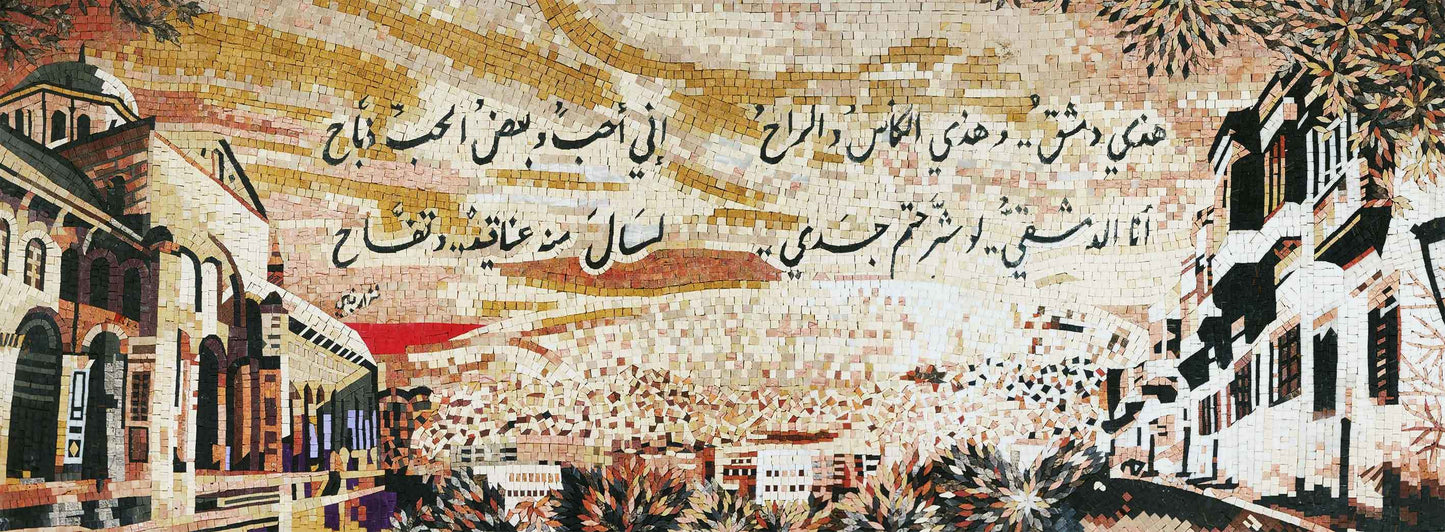 هذي دمشقُ.. وهذي الكأسُ والراحُ إني أحبُ وبعضُ الحبّ ذبَّاح
أنا الدمشقيُّ.. لو شرَّحتم جسَدي.. لسَالَ منه عناقيدٌ.. وتفَّاح
نزار قباني